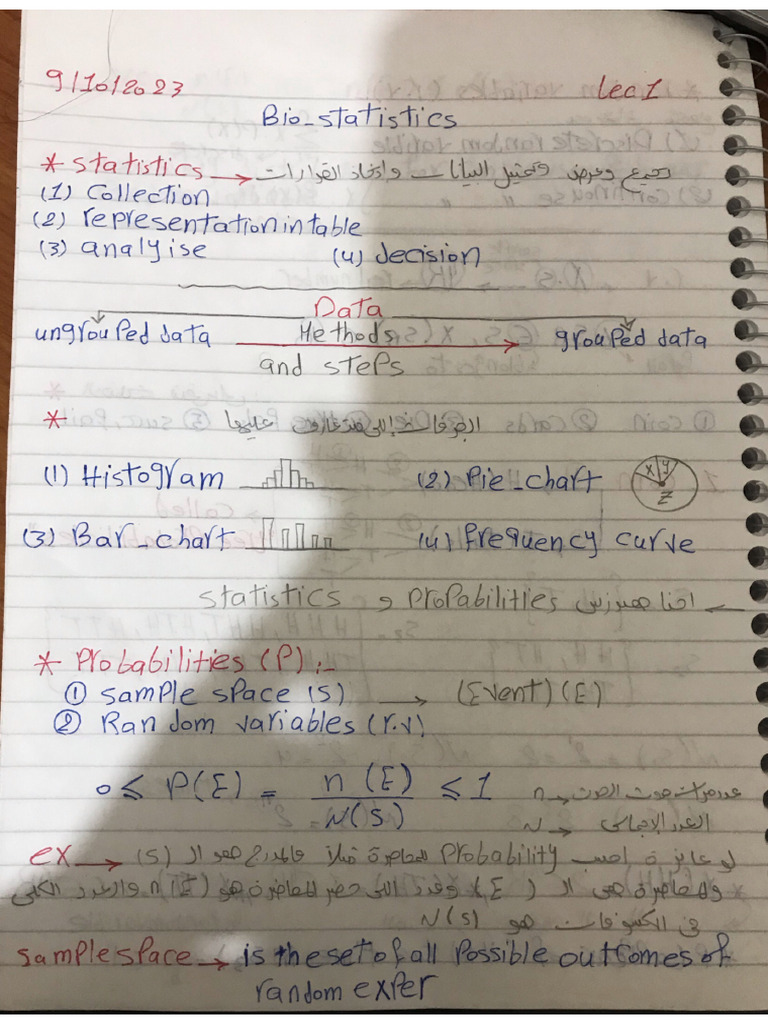 9/10/2023 Lec 1
Bio_statistics
* Statistics → تجميع وعرض وتحليل البيانات واتخاذ القرارات
(1) Collection
(2) representation in table
(3) analyise (4) decision
Data
ungrouped data Methods → grouped data
and steps
* اللي متعارف عليها
(1) Histogram (2) Pie_chart x y z
(3) Bar_chart (4) frequency curve
← احنا هندرس Propabilities و statistics
* Probabilities (P) :-
① Sample space (S) → (Event) (E)
② Random variables (r.v)
0 ≤ P(E) = n(E) / N(S) ≤ 1
n → عدد مرات حدوث الحدث
N → العدد الاجمالى
ex → لو عايزة احسب Probability للمحاضرة مثلاً فالمدرج هو ال (S)
والمحاضرة هى ال (E) وعدد اللى حضر المحاضرة هو n(E) والعدد الكلى
فى الكشوفات هو N(S)
Sample space → is the set of all possible outcomes of
random exper